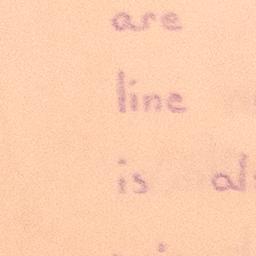 are
line
is